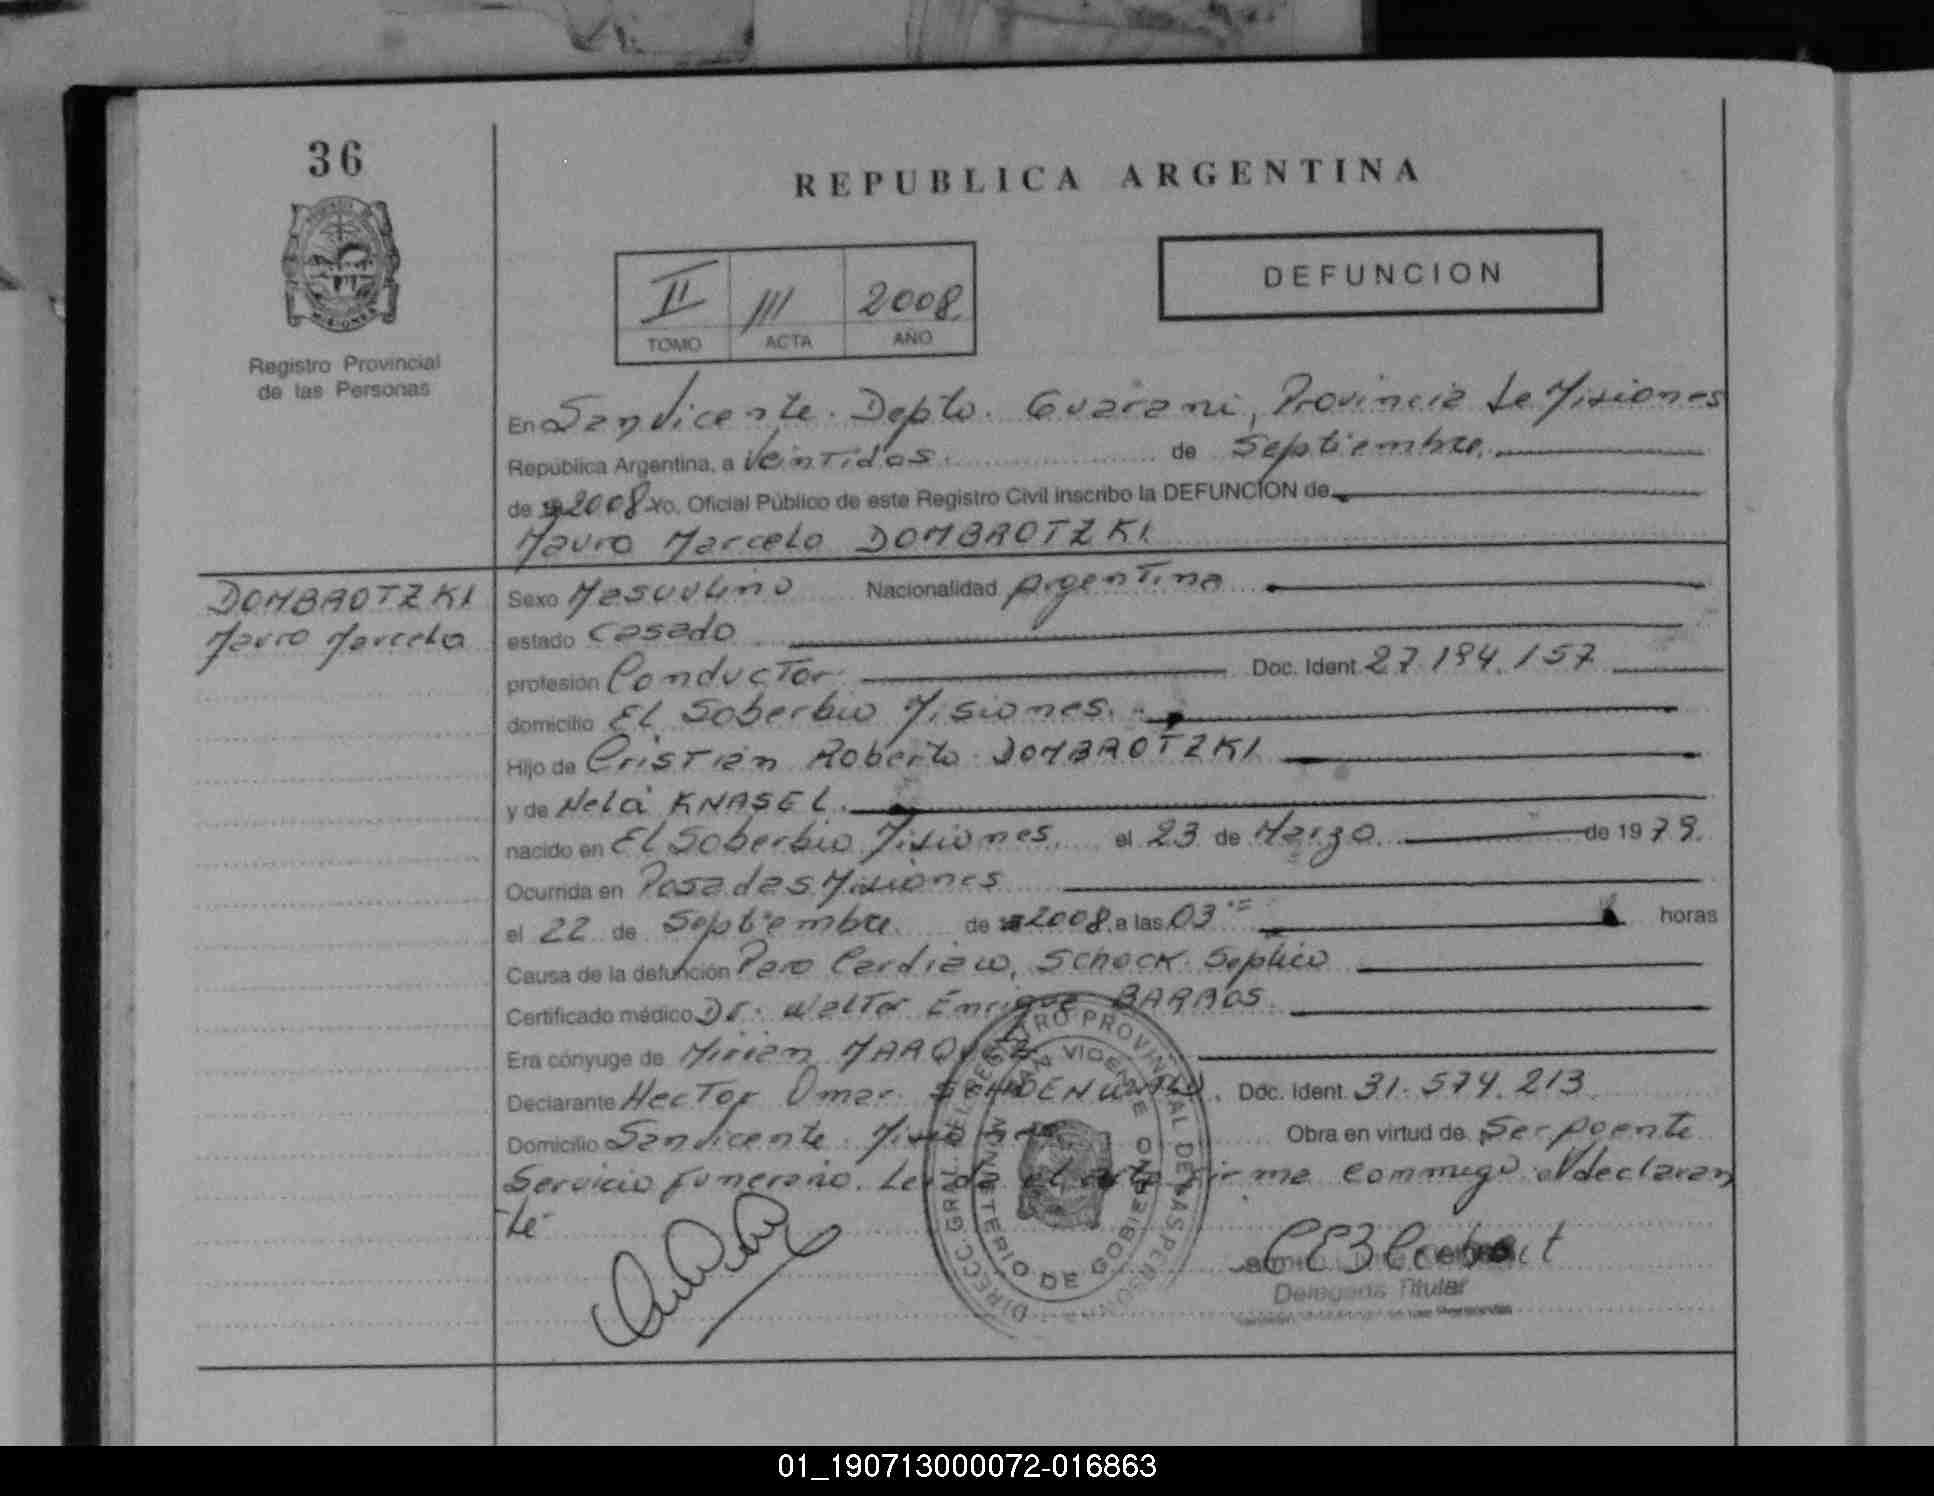 36
REPUBLICA ARGENTINA
Registro Provincial
de las Personas
II 111 2008
TOMO ACTA AÑO
DEFUNCION
En San Vicente. Depto. Guarani, Provincia de Misiones
República Argentina, a Veintidos de Septiembre
de 2008 Yo, Oficial Público de este Registro Civil inscribo la DEFUNCION de
Mauro Marcelo DOMBROTZKI
DOMBROTZKI
Mauro Marcelo
Sexo Masculino Nacionalidad Argentina
estado Casado
profesión Conductor Doc. Ident. 27.194.157
domicilio El Soberbio Misiones.
Hijo de Cristian Roberto DOMBROTZKI
y de Nela KNASEL.
nacido en El Soberbio Misiones. el 23 de Marzo de 1979.
Ocurrida en Posadas Misiones
el 22 de Septiembre de 2008 a las 03 horas
Causa de la defunción Paro Cardiaco, Schock Septico
Certificado médico Dr. Walter Enrique BARRIOS
Era cónyuge de Mirian MARQUEZ
Declarante Hector Omar Doc. Ident. 31.574.213
Domicilio San Vicente Misiones Obra en virtud de Ser poente
Servicio Funerario. Leida el acta firma conmigo el declaran
te
DIRECC. GRAL. DEL REGISTRO PROVINCIAL DE LAS PERSONAS
SAN VICENTE
MINISTERIO DE GOBIERNO
Delegada Titular
01_190713000072-016863